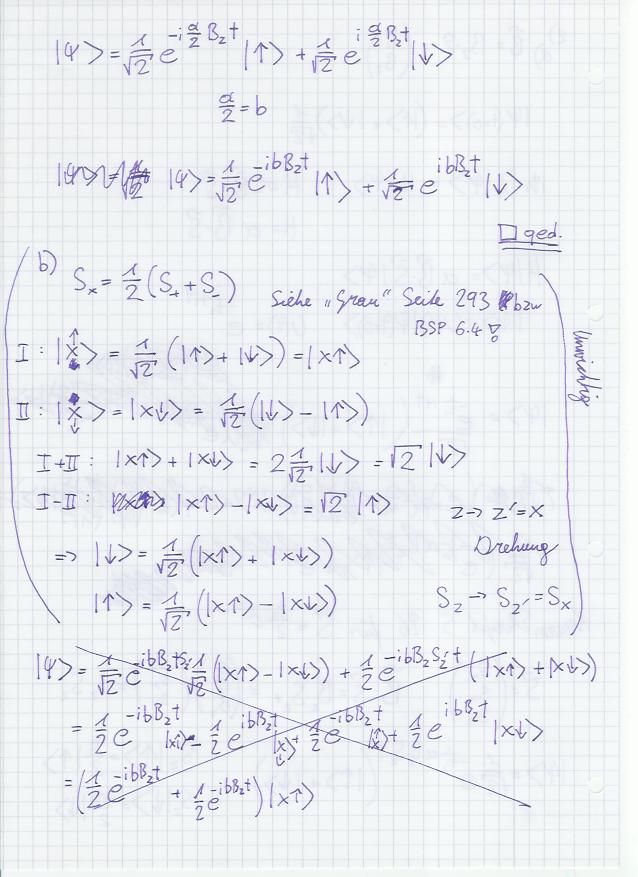 |Ψ> = 1/√2 e^{-i α/2 B_z t} |↑> + 1/√2 e^{i α/2 B_z t} |↓>
α/2 = b
|Ψ> = 1/√2 e^{-ibB_z t} |↑> + 1/√2 e^{ibB_z t} |↓>
□ qed.
b) S_x = 1/2 (S_+ + S_-)
Siehe „Grau" Seite 293 bzw
BSP 6.4!
I: |x↑> = 1/√2 (|↑> + |↓>) = |x↑>
II: |x↓> = |x↓> = 1/√2 (|↓> - |↑>)
Unwichtig
I+II: |x↑> + |x↓> = 2 1/√2 |↓> = √2 |↓>
I-II: |x↑> - |x↓> = √2 |↑>
z → z' = x
Drehung
=> |↓> = 1/√2 (|x↑> + |x↓>)
|↑> = 1/√2 (|x↑> - |x↓>)
S_z → S_z' = S_x
|Ψ> = 1/√2 e^{-ibB_z t S_z'} 1/√2 (|x↑> - |x↓>) + 1/2 e^{-ibB_z S_z' t} (|x↑> + |x↓>)
= 1/2 e^{-ibB_z t} |x↑> - 1/2 e^{ibB_z t} |x↓> + 1/2 e^{-ibB_z t} |x↑> + 1/2 e^{ibB_z t} |x↓>
= (1/2 e^{-ibB_z t} + 1/2 e^{-ibB_z t}) |x↑>